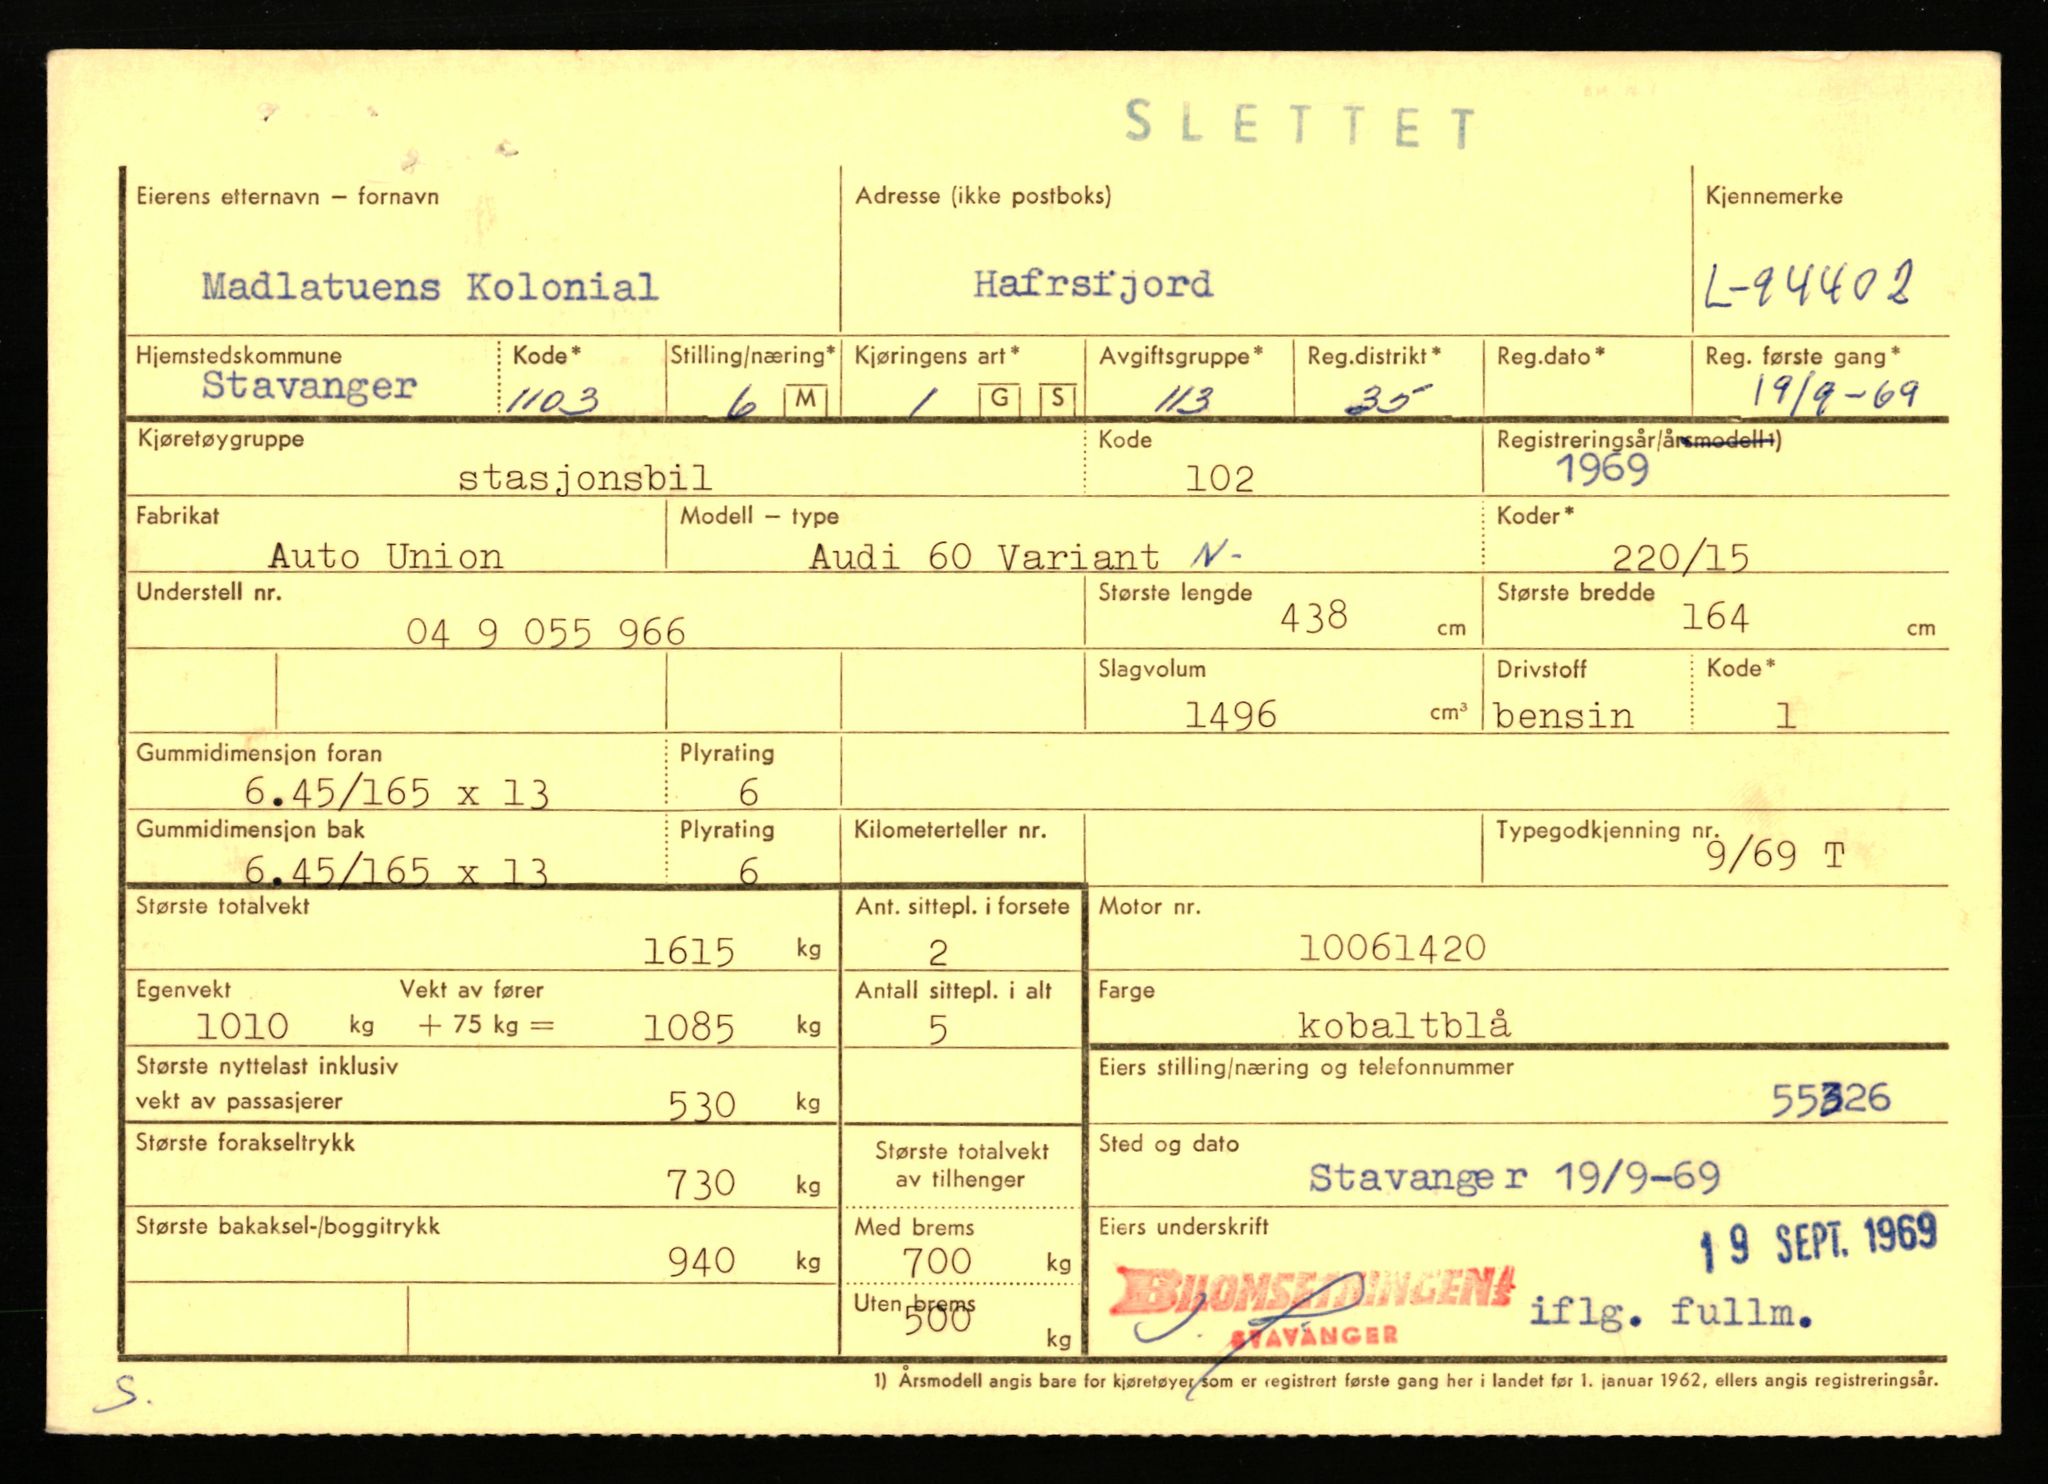 SLETTET
Eierens etternavn – fornavn
Adresse (ikke postboks)
Kjennemerke
Madlatuens Kolonial
Hafrsfjord
L-94402
Hjemstedskommune
Kode*
Stilling/næring*
Kjøringens art*
Avgiftsgruppe*
Reg.distrikt*
Reg.dato*
Reg. første gang*
Stavanger
1103
6 M
1 G S
113
35
19/9-69
Kjøretøygruppe
Kode
Registreringsår/årsmodell 1)
stasjonsbil
102
1969
Fabrikat
Modell – type
Koder*
Auto Union
Audi 60 Variant N-
220/15
Understell nr.
Største lengde
Største bredde
04 9 055 966
438 cm
164 cm
Slagvolum
Drivstoff
Kode*
1496 cm³
bensin
1
Gummidimensjon foran
Plyrating
6.45/165 x 13
6
Gummidimensjon bak
Plyrating
Kilometerteller nr.
Typegodkjenning nr.
6.45/165 x 13
6
9/69 T
Største totalvekt
Ant. sittepl. i forsete
Motor nr.
1615 kg
2
10061420
Egenvekt
Vekt av fører
Antall sittepl. i alt
Farge
1010 kg + 75 kg = 1085 kg
5
kobaltblå
Største nyttelast inklusiv
vekt av passasjerer
530 kg
Eiers stilling/næring og telefonnummer
55326
Største forakseltrykk
730 kg
Største totalvekt
av tilhenger
Sted og dato
Stavanger 19/9-69
Største bakaksel-/boggitrykk
940 kg
Med brems
700 kg
Uten brems
500 kg
Eiers underskrift
19 SEPT. 1969
BILOMSETNINGEN A/S
STAVANGER
iflg. fullm.
1) Årsmodell angis bare for kjøretøyer som er registrert første gang her i landet før 1. januar 1962, ellers angis registreringsår.
S.